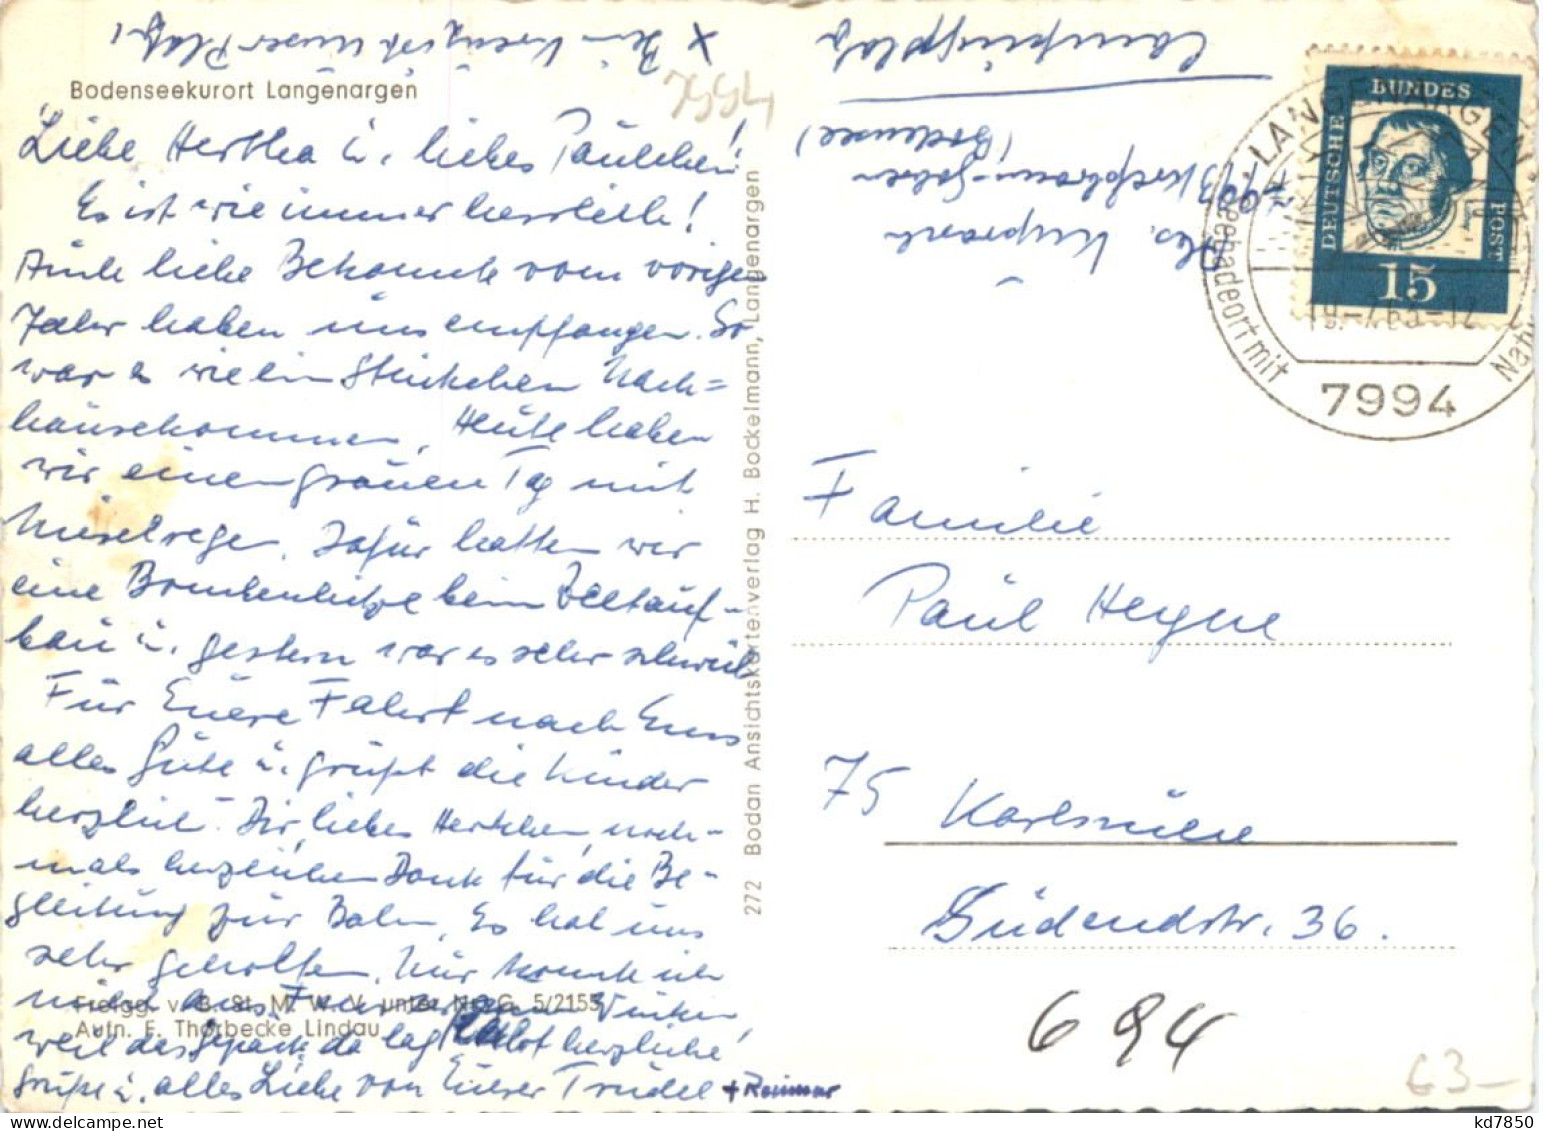 x Im Kreuz ist unser Platz!
Campingplatz
Bodenseekurort Langenargen
7994
Liebe Hertha u. liebes Paulchen!
Es ist wie immer herrlich!
Auch liebe Bekannte vom vorigen
Jahr haben uns empfangen. So
war es wie ein Stückchen Nach-
hausekommen. Heute haben
wir einen grauen Tag mit
Nieselregen. Dafür hatten wir
eine Bombenhitze beim Zeltauf-
bau u. gestern war es sehr schwül.
Für Euere Fahrt nach Ems
alles Gute u. grüßt die Kinder
herzlich. Dir, liebes Herthchen, noch-
mals herzlichen Dank für die Be-
gleitung zur Bahn. Es hat uns
sehr geholfen. Nur konnte ich
nicht aus Fenster winken
weil das Gepäck da lag. herzliche
Grüße u. alles Liebe von Euerer Trudel + Reimar
Freigg. v. B. St. M. W. V. unter Nr. G. 5/2155
Aufn. E. Thorbecke Lindau
272 Bodan Ansichtskartenverlag H. Bockelmann, Langenargen
7993 Kressbronn-Gohren
(Bodensee)
DEUTSCHE BUNDESPOST
15
LANGENARGEN
Seebadeort mit
7994
Familie
Paul Heyne
75 Karlsruhe
Südendstr. 36.
694
€3-
kd7850